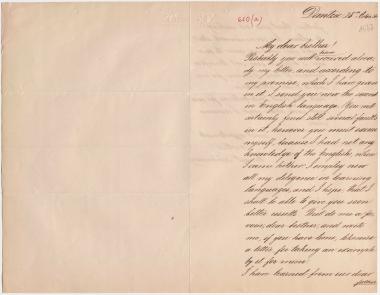 610(a)
Dantex, 15
My dear brother!
Probably you will have received already my letter and according to
my promise, which I have given
in it I send you now the second
in English language. You will
certainly find still several faults
in it, however you must excuse
myself, because I had not any
knowledge of the English, when
I came hither. I employ now
all my diligence in learning
languages, and I hope, that I
shall be able to give you soon
better results. But do me a fa-
vour, dear brother, and write
me, if you have time, likewise
a letter for taking an example
by it for mine.
I have learned from our dear